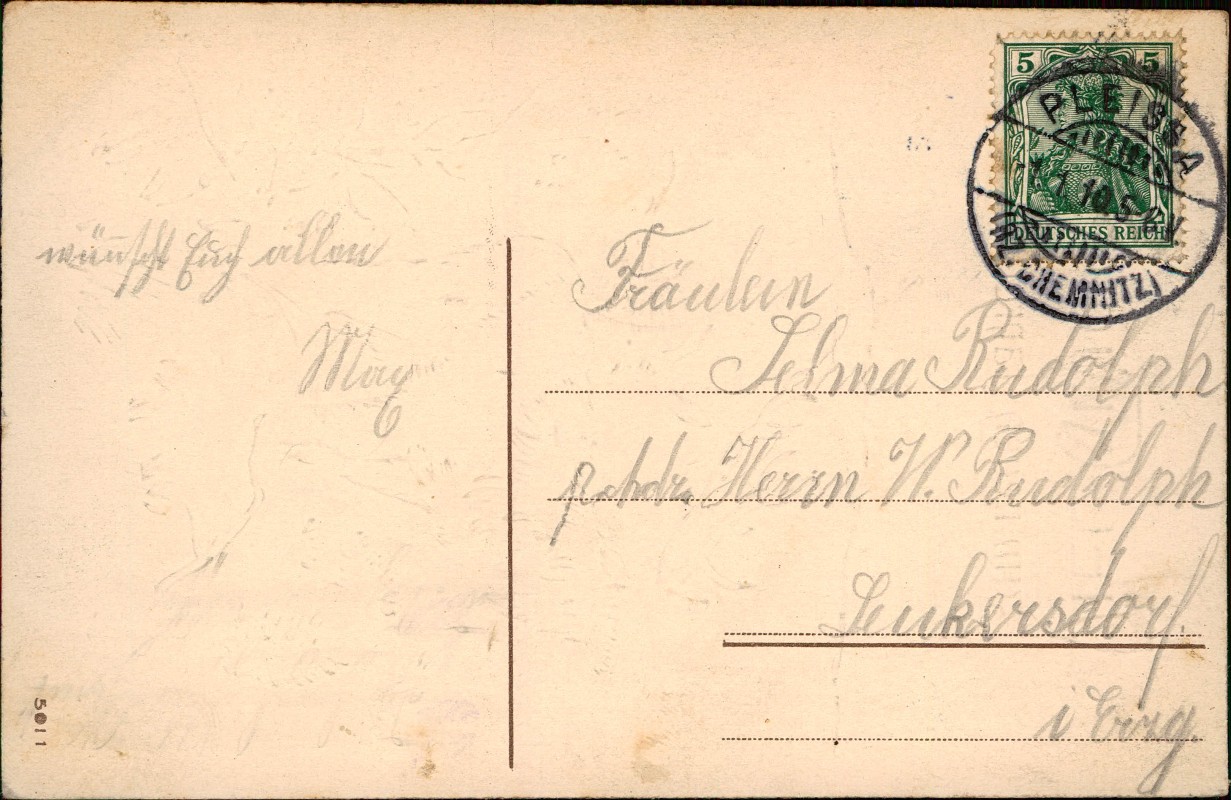 5 5
DEUTSCHES REICH
PLEISSA
1.1.10.5-6N
(BZ. CHEMNITZ)
wünscht Euch allen
Max
Fräulein
Selma Rudolph
p. Adr. Herrn W. Rudolph
Leukersdorf.
i Erzg.
5011